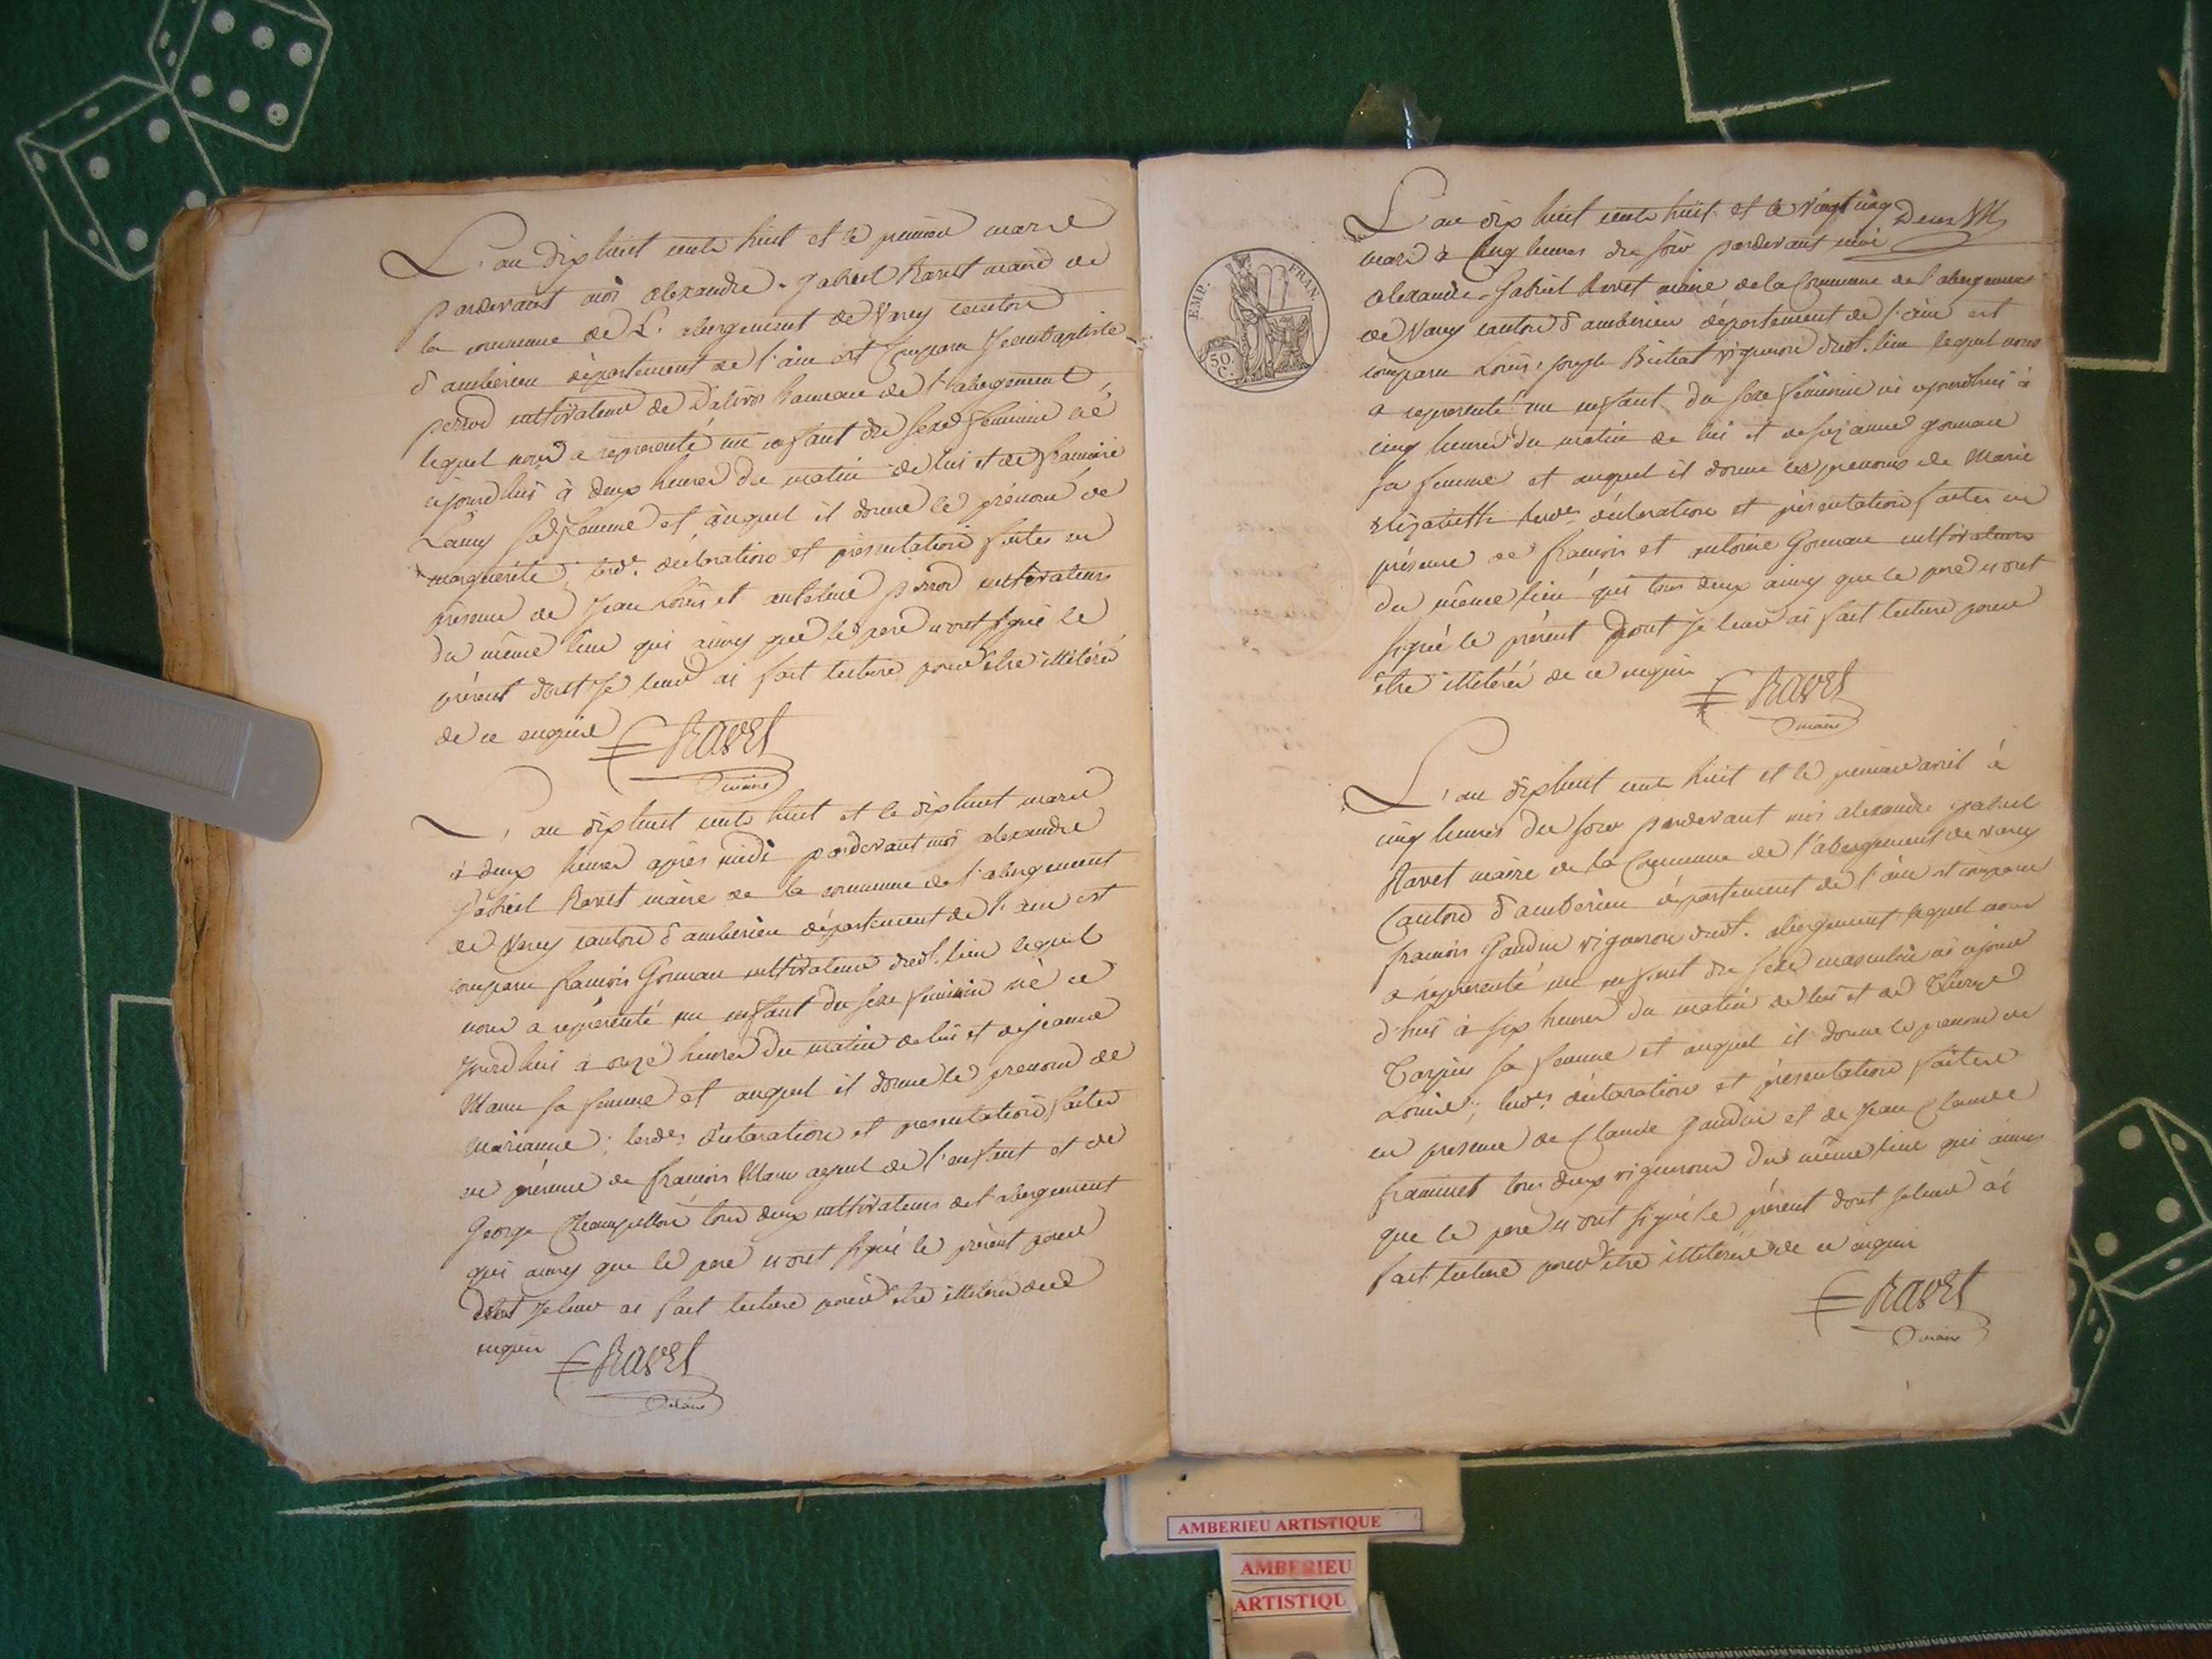 L'an dix huit cents huit et le premier mars
pardevant moi alexandre - gabriel Ravet maire de
la commune de L'abergement de Varey canton
d'amberieu département de l'ain est comparu Jean baptiste
perrod cultivateur de hameau de l'abergement
lequel nous a représenté un enfant du sexe feminin né
ajourdhui à deux heures du matin de lui et de francoise
Lamy sa femme et auquel il donne le prénom de
marguerite; lesdes déclaration et présentation faites en
présence de Jean Louis et antelme perrod cultivateurs
du même lieu qui ainsy que le pere n'ont signé le
présent dont Je leur ai fait lecture pour être illitérés
de ce enquis
Ravet
maire
L'an dix huit cents huit et le dix huit mars
à deux heures après midi pardevant moi alexandre
Gabriel Ravet maire de la commune de l'abergement
de Varey canton d'amberieu département de l'ain est
comparu francois Gonnan cultivateur dudt. lieu lequel
nous a représenté un enfant du sexe feminin né ce
Jourdhui à onze heures du matin de lui et de jeanne
Mann sa femme et auquel il donne le prenom de
marianne; lesdes déclaration et presentation faites
en présence de francois Mann ayeul de l'enfant et de
George tous deux cultivateurs de l'abergement
qui ainsy que le pere n'ont signé le présent pour
dont Je leur ai fait lecture pour être illitérés de ce
enquis
Ravet
maire
EMP. FRAN.
50 C.
L'an dix huit cents huit et le vingt cinq Deux
mars à Cinq heures du soir pardevant moi
alexandre - Gabriel Ravet maire de la Commune de l'abergement
de Varey canton d'amberieu département de l'ain est
comparu Louis, joseph vigneron dudt. lieu lequel nous
a representé un enfant du sexe feminin né ajourdhui à
cinq heures du matin de lui et de suzanne gonnan
sa femme et auquel il donne les prenoms de Marie
Elizabeth lesdes déclaration et présentation faites en
présence de francois et antoine Gonnan cultivateurs
du même lieu qui tous deux ainsy que le pere n'ont
signé le présent dont Je leur ai fait lecture pour
être illitérés de ce enquis
Ravet
maire
L'an dix huit cents huit et le premier avril à
cinq heures du soir pardevant moi alexandre gabriel
Ravet maire de la Commune de l'abergement de varey
Canton d'amberieu département de l'ain est comparu
francois Gaudin vigneron dudt. abergement lequel nous
a représenté un enfant du sexe masculin né ajour
d'hui à six heures du matin de lui et de Thérese
Tarpin sa femme et auquel il donne le prenom de
Louis; lesdes déclaration et présentation faites
en presence de Claude Gaudin et de Jean Claude
tous deux vignerons du même lieu qui ainsy
que le pere n'ont signé le présent dont Je leur ai
fait lecture pour être illitérés de ce enquis
Ravet
maire
AMBERIEU ARTISTIQUE
AMBERIEU
ARTISTIQU